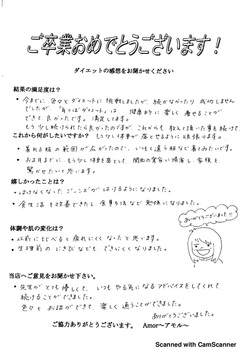 ご卒業おめでとうございます！
ダイエットの感想をお聞かせください
結果の満足度は？
・今までに色々とダイエットに挑戦しましたが続かなかったり成功しません
でしたが、「耳つぼダイエット」は健康的に楽しく痩せることが
できて良かったです。満足します。
もう少し続けられたら良かったのですが、これからも教えて頂いた事を続けて
これから何がしたいですか？ もう少し体重が落とせるように頑張ります。
・着れる服の範囲が広がったので、いろいろ違う服など着てみたいです。
・お正月までにもう少し体重を落として 関西の実家に帰省し、家族を
驚かせたいと思います。
嬉しかったことは？
・はけなくなったジーンズがはけるようになりました。
・食生活を改善できたし食事方法など勉強になりました。
ありがとうございました!!
体調や肌の変化は？
・以前にくらべると疲れにくくなったと思います。
・生理前のにきびなどもできにくくなりました。
当店へご意見をお聞かせ下さい。
・先生がとても優しくて、いつも気になるアドバイスをしてくれて
続けることができました。
・色々とお話ができて楽しく通うことができました。
ありがとうございました。
ご協力ありがとうございます。 Amor～アモル～
Scanned with CamScanner